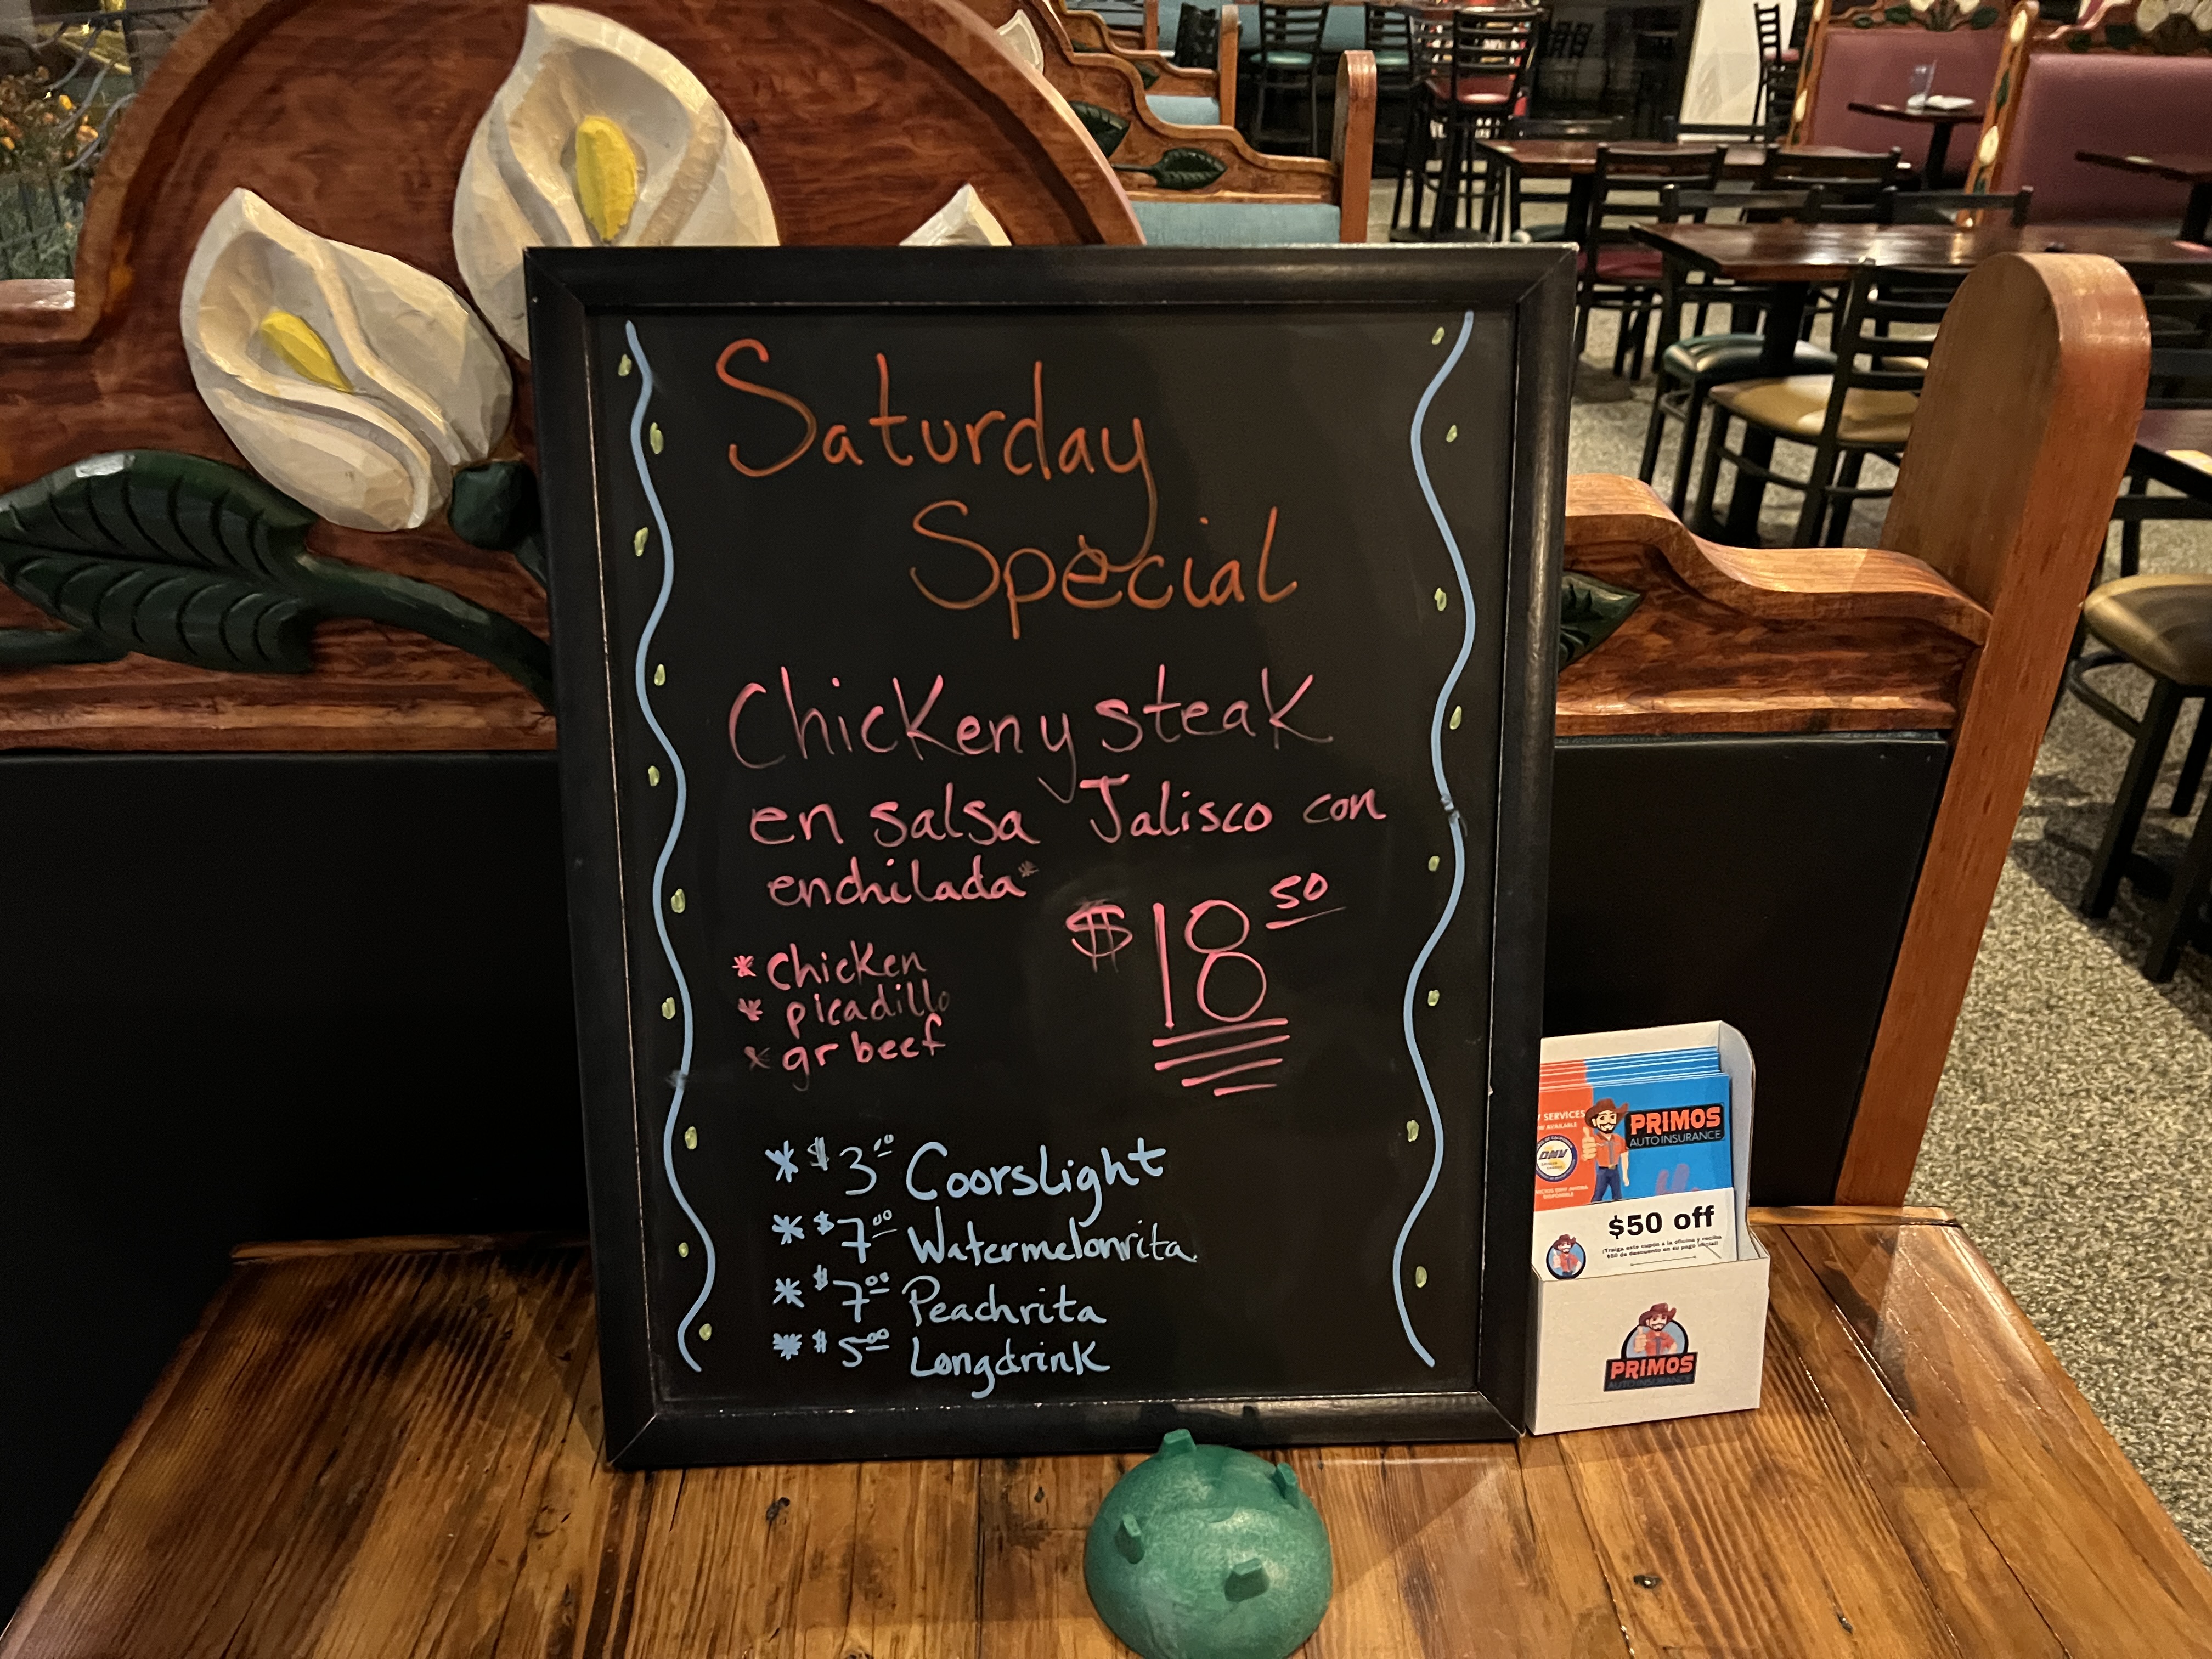 Saturday
Special
Chicken y steak
en salsa Jalisco con
enchilada*
$18 50
* chicken
* picadillo
* gr beef
* $3.00 Coorslight
* $7.00 Watermelonrita
* $7.00 Peachrita
* $5.00 Longdrink
SERVICES
DMV
PRIMOS
AUTO INSURANCE
$50 off
¡Traiga este cupón a la oficina y reciba
$50 de descuento en su pago inicial!
PRIMOS
AUTO INSURANCE